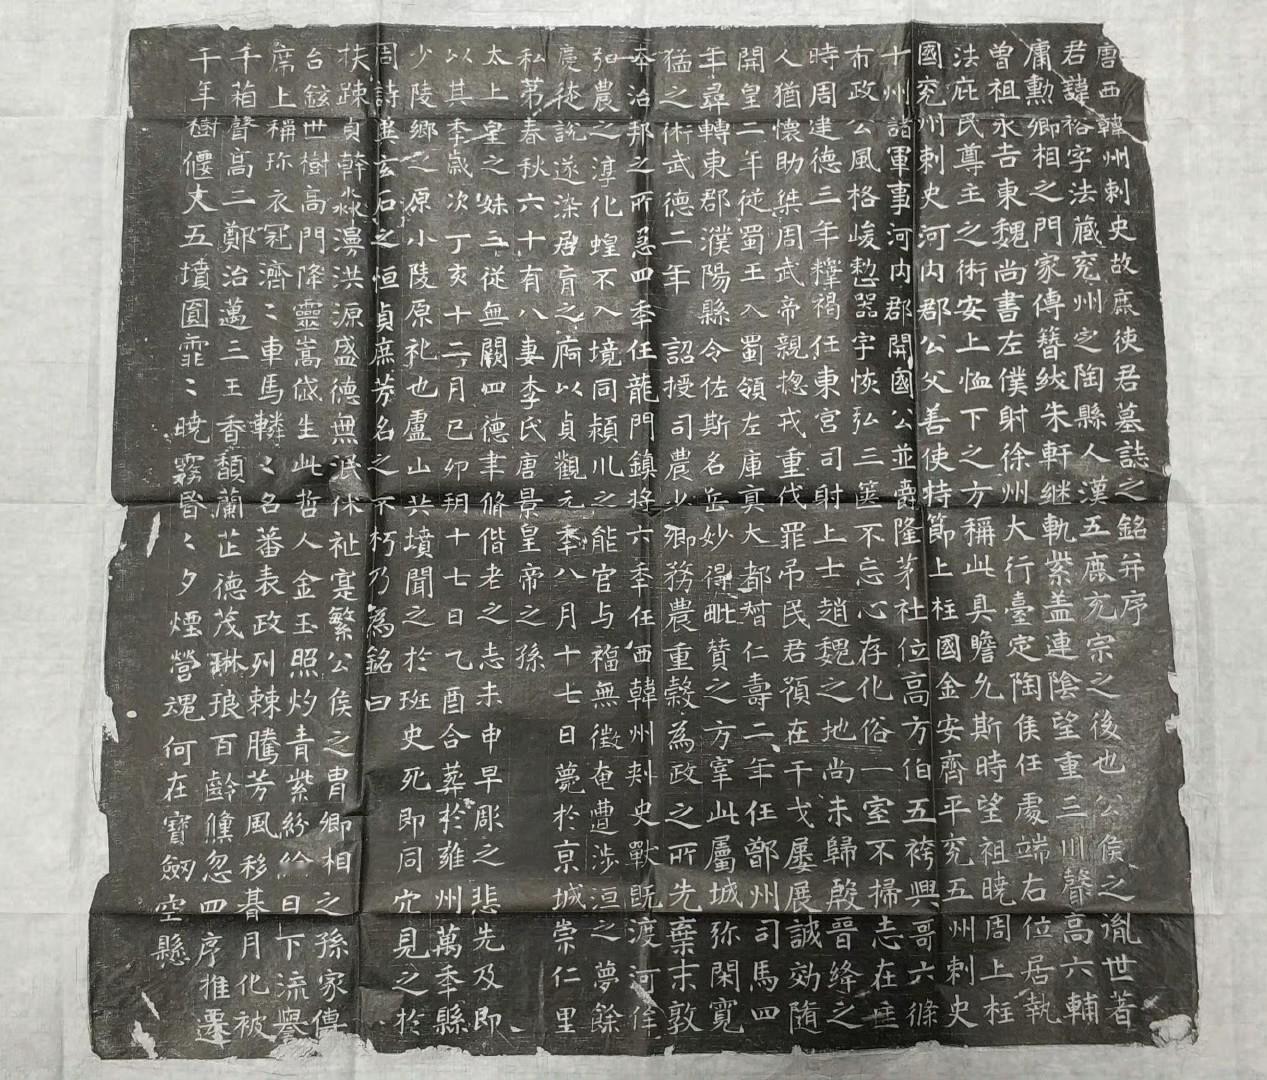 唐西韓州刺史故庶使君墓誌之銘并序
君諱裕字法藏兖州之陶縣人漢五鹿充宗之後也公侯之胤世著
庸勳卿相之門家傳簪紱朱軒継軌紫盖連陰望重三川聲高六輔
曾祖永吉東魏尚書左僕射徐州大行臺定陶侯任處端右位居執
法庇民尊主之術安上恤下之方稱此具瞻允斯時望祖曉周上柱
國兖州刺史河内郡公父善使持節上柱國金安齊平兖五州刺史
十州諸軍事河内郡開國公並爵隆茅社位高方伯五袴興哥六條
布政公風格峻懃器宇恢弘三篋不忘心存化俗一室不掃志在
時周建德三年釋褐任東宮司射上士趙魏之地尚未歸殷晉絳之
人猶懷助桀周武帝親揔戎重伐罪吊民君預在干戈屢展誠効隨
開皇二年從蜀王入蜀領左庫真大都督仁壽二年任鄫州司馬四
年尋轉東郡濮陽縣令佐斯名岳妙得毗賛之方宰此屬城弥閑寬
猛之術武德二年 詔授司農少卿務農重穀為政之所先棄末敦
本治邦之所急四年任龍門鎮將六年任西韓州刺史獸既渡河侔
弘農之淳化蝗不入境同潁川之能官与福無徵奄遭涉洹之夢餘
慶徒說遂染居肓之痾以貞觀元年八月十七日薨於京城崇仁里
私苐春秋六十有八妻李氏唐景皇帝之孫
太上皇之妹三從無闕四德聿脩偕老之志未申早彫之悲先及即
以其季歲次丁亥十二月己卯朔十七日乙酉合葬於雍州萬年縣
少陵鄉之原小陵原礼也盧山共墳聞之於班史死即同穴見之於
周詩冀玄石之恒貞庶芳名之不朽乃為銘曰
扶疎貞幹淼漭洪源盛德無泯休祉寔繁公侯之胄卿相之孫家傳
台鉉世樹高門降靈嵩岱生此哲人金玉照灼青紫紛綸日下流譽
席上稱珎衣冠濟〻車馬轔〻名蕃表政列棘騰芳風移朞月化被
千箱聲高二鄭治邁三王香馥蘭芷德茂琳琅百齡儵忽四序推遷
千年樹偃大五墳圓霏〻曉霧昏〻夕煙營魂何在寳劒空懸